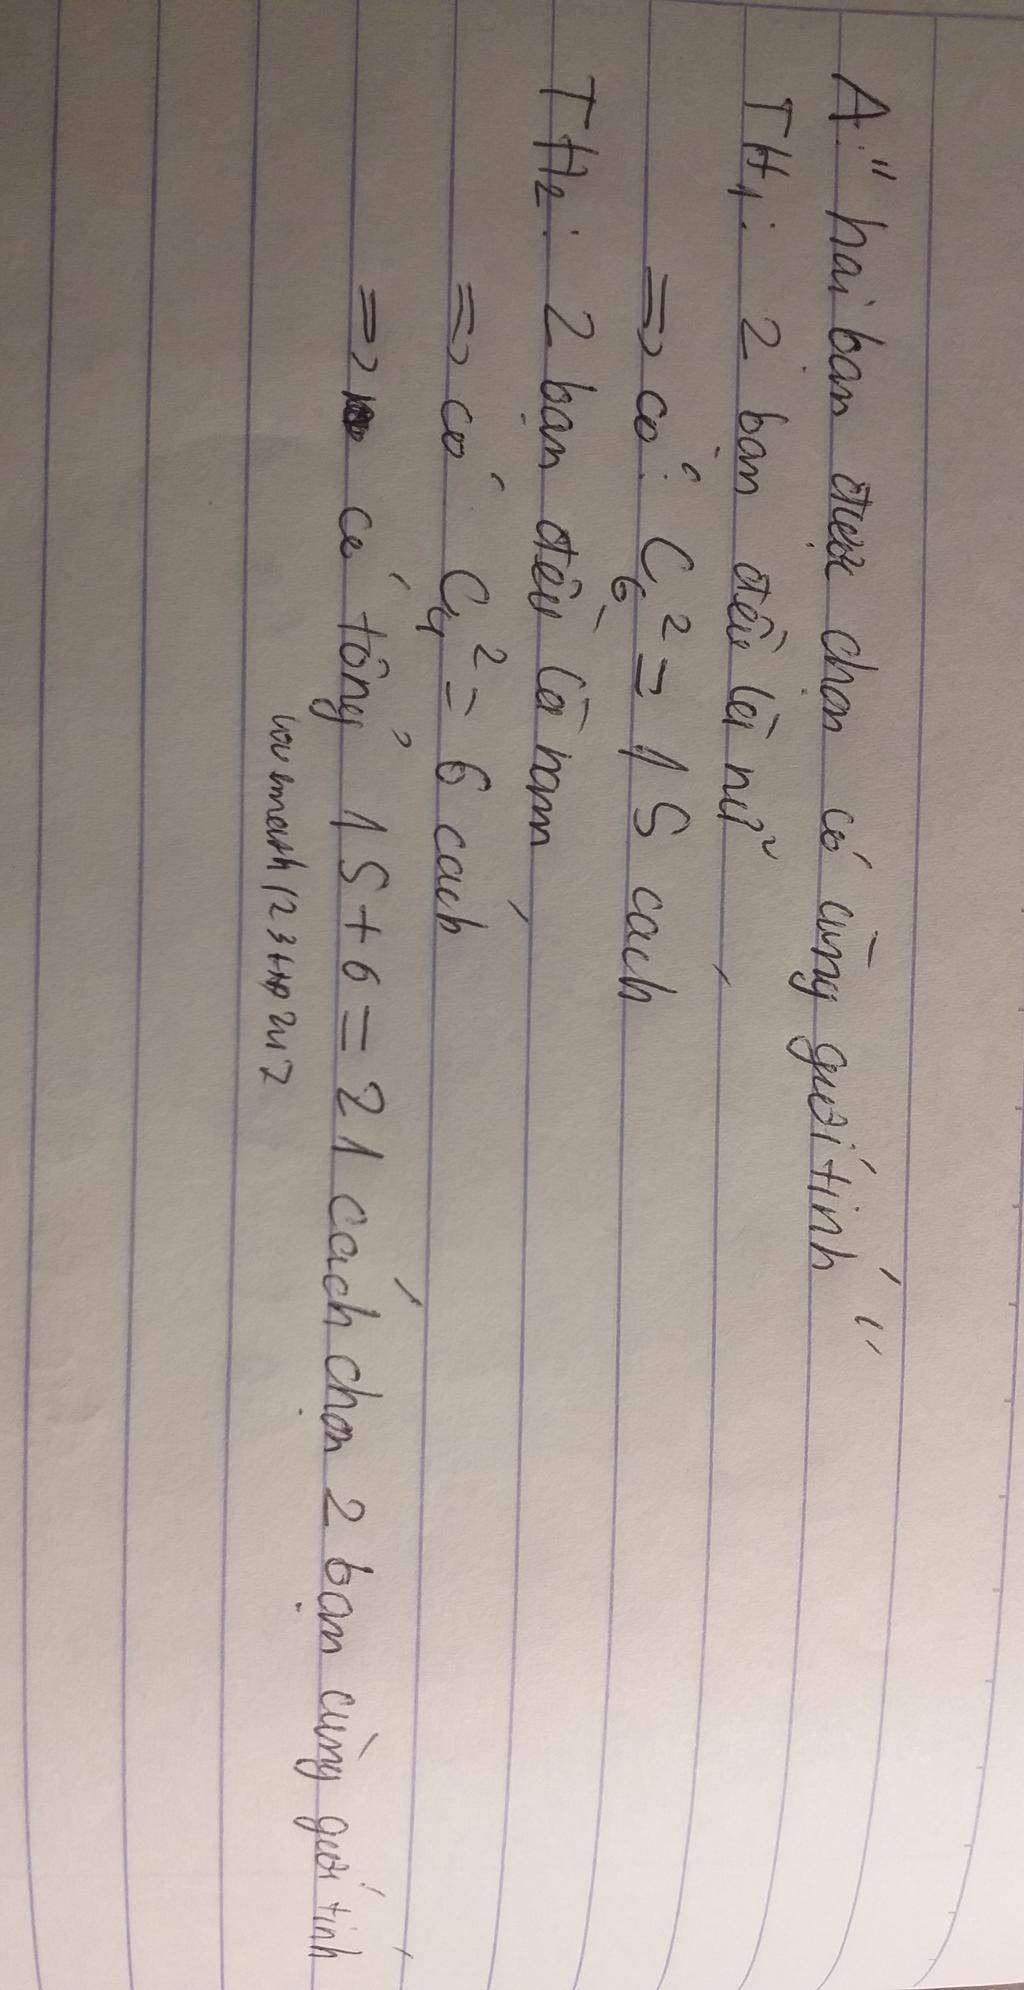 A: " hai bạn được chọn có cùng giới tính "
TH1: 2 bạn đều là nữ
=> có: C₆² = 15 cách
TH2: 2 bạn đều là nam
=> có C₄² = 6 cách
=> có tổng 15 + 6 = 21 cách chọn 2 bạn cùng giới tính